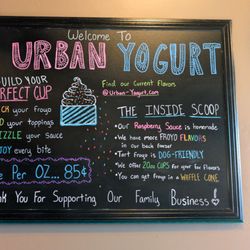 Welcome To
URBAN YOGURT
BUILD YOUR
PERFECT CUP
your froyo
your toppings
your Sauce
every bite
Per OZ... 85¢
Find our Current Flavors
@Urban-Yogurt.com
THE INSIDE SCOOP
•Our Raspberry Sauce is homemade
•We have more FROYO FLAVORS
in our back freezer
•Tart froyo is DOG-FRIENDLY
•We offer 20oz CUPS for your
•You can get froyo in a WAFFLE CONE
You For Supporting Our Family Business